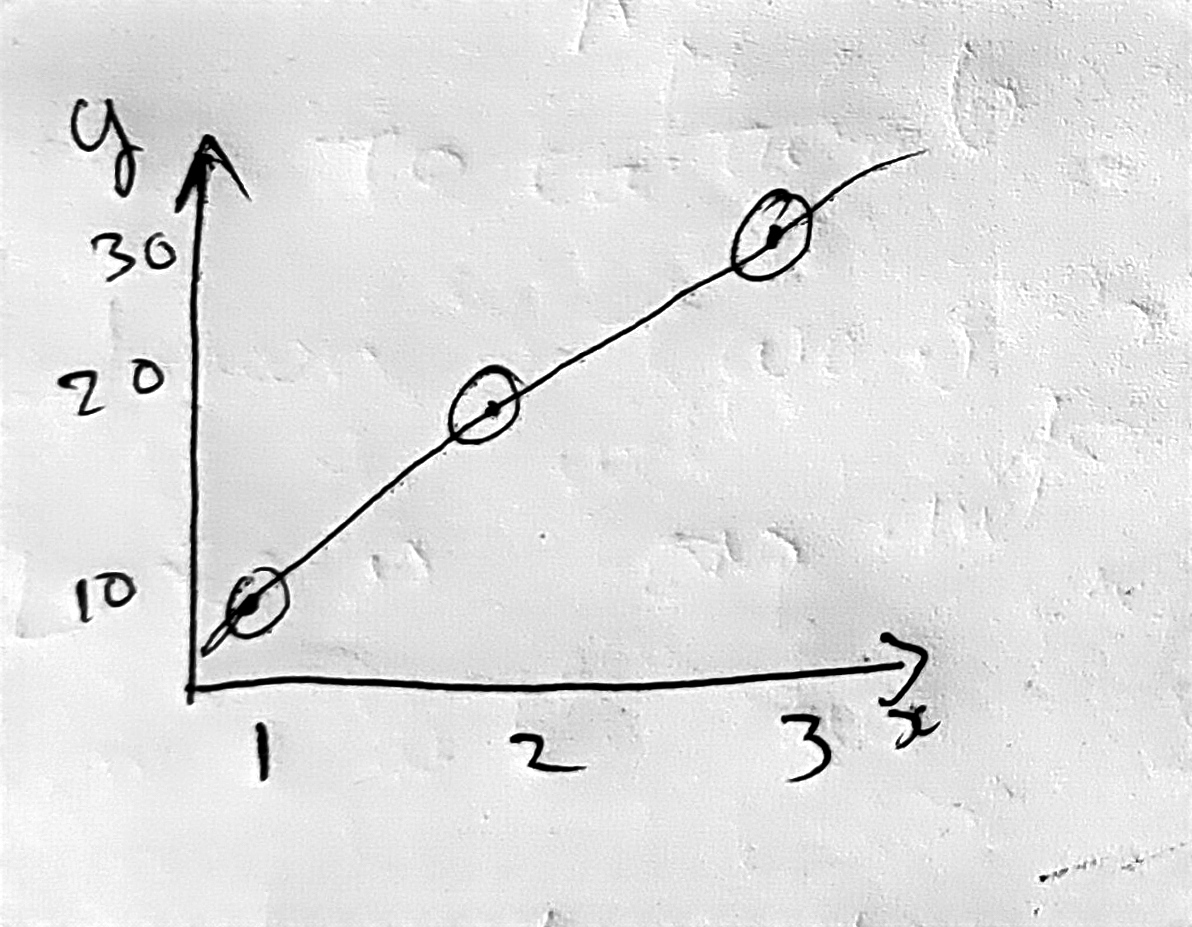 y
30
20
10
1 2 3 x